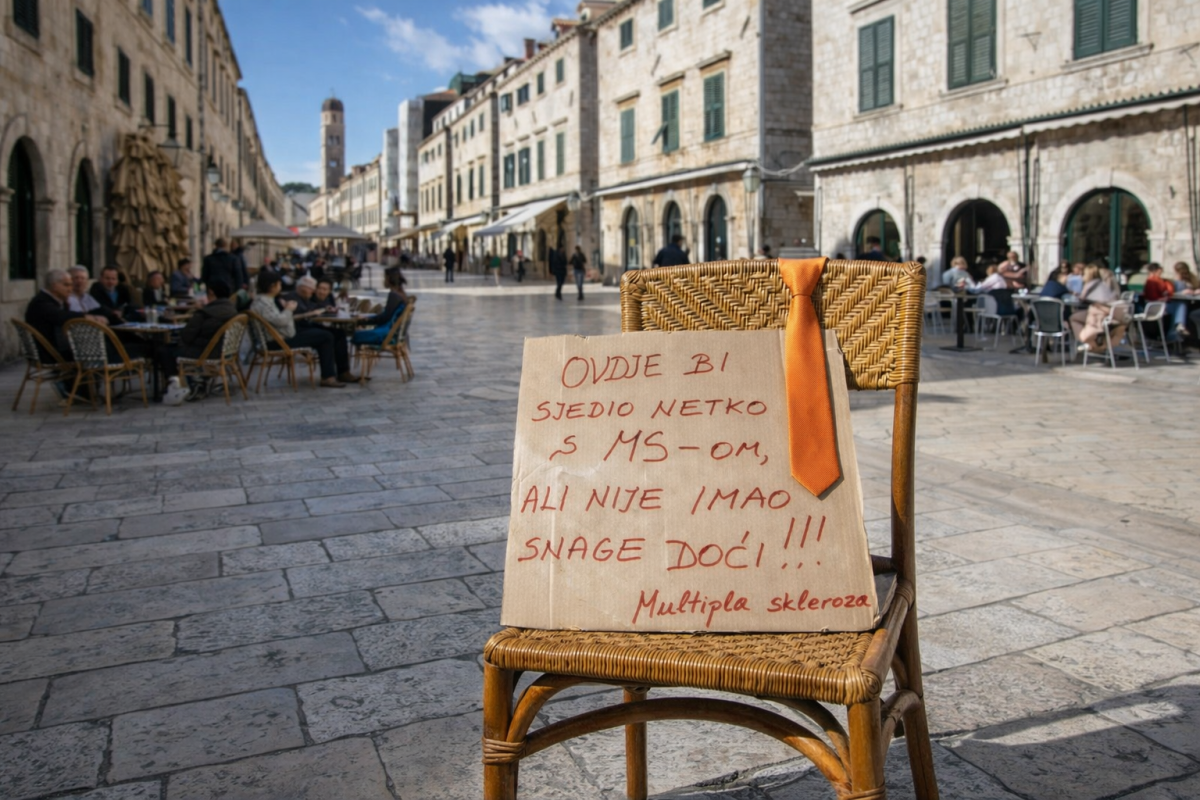 OVDJE BI
SJEDIO NETKO
S MS-OM,
ALI NIJE IMAO
SNAGE DOĆI!!!
Multipla skleroza